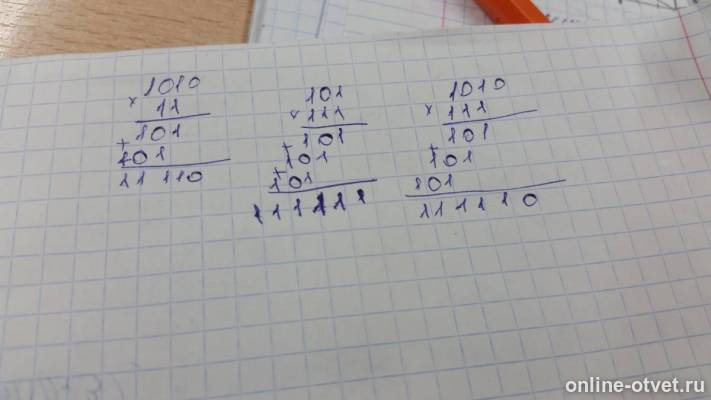 1010
× 11
101
+
101
11110
101
× 111
101
+
101
+
101
111111
1010
× 111
101
+
101
101
111110
online-otvet.ru